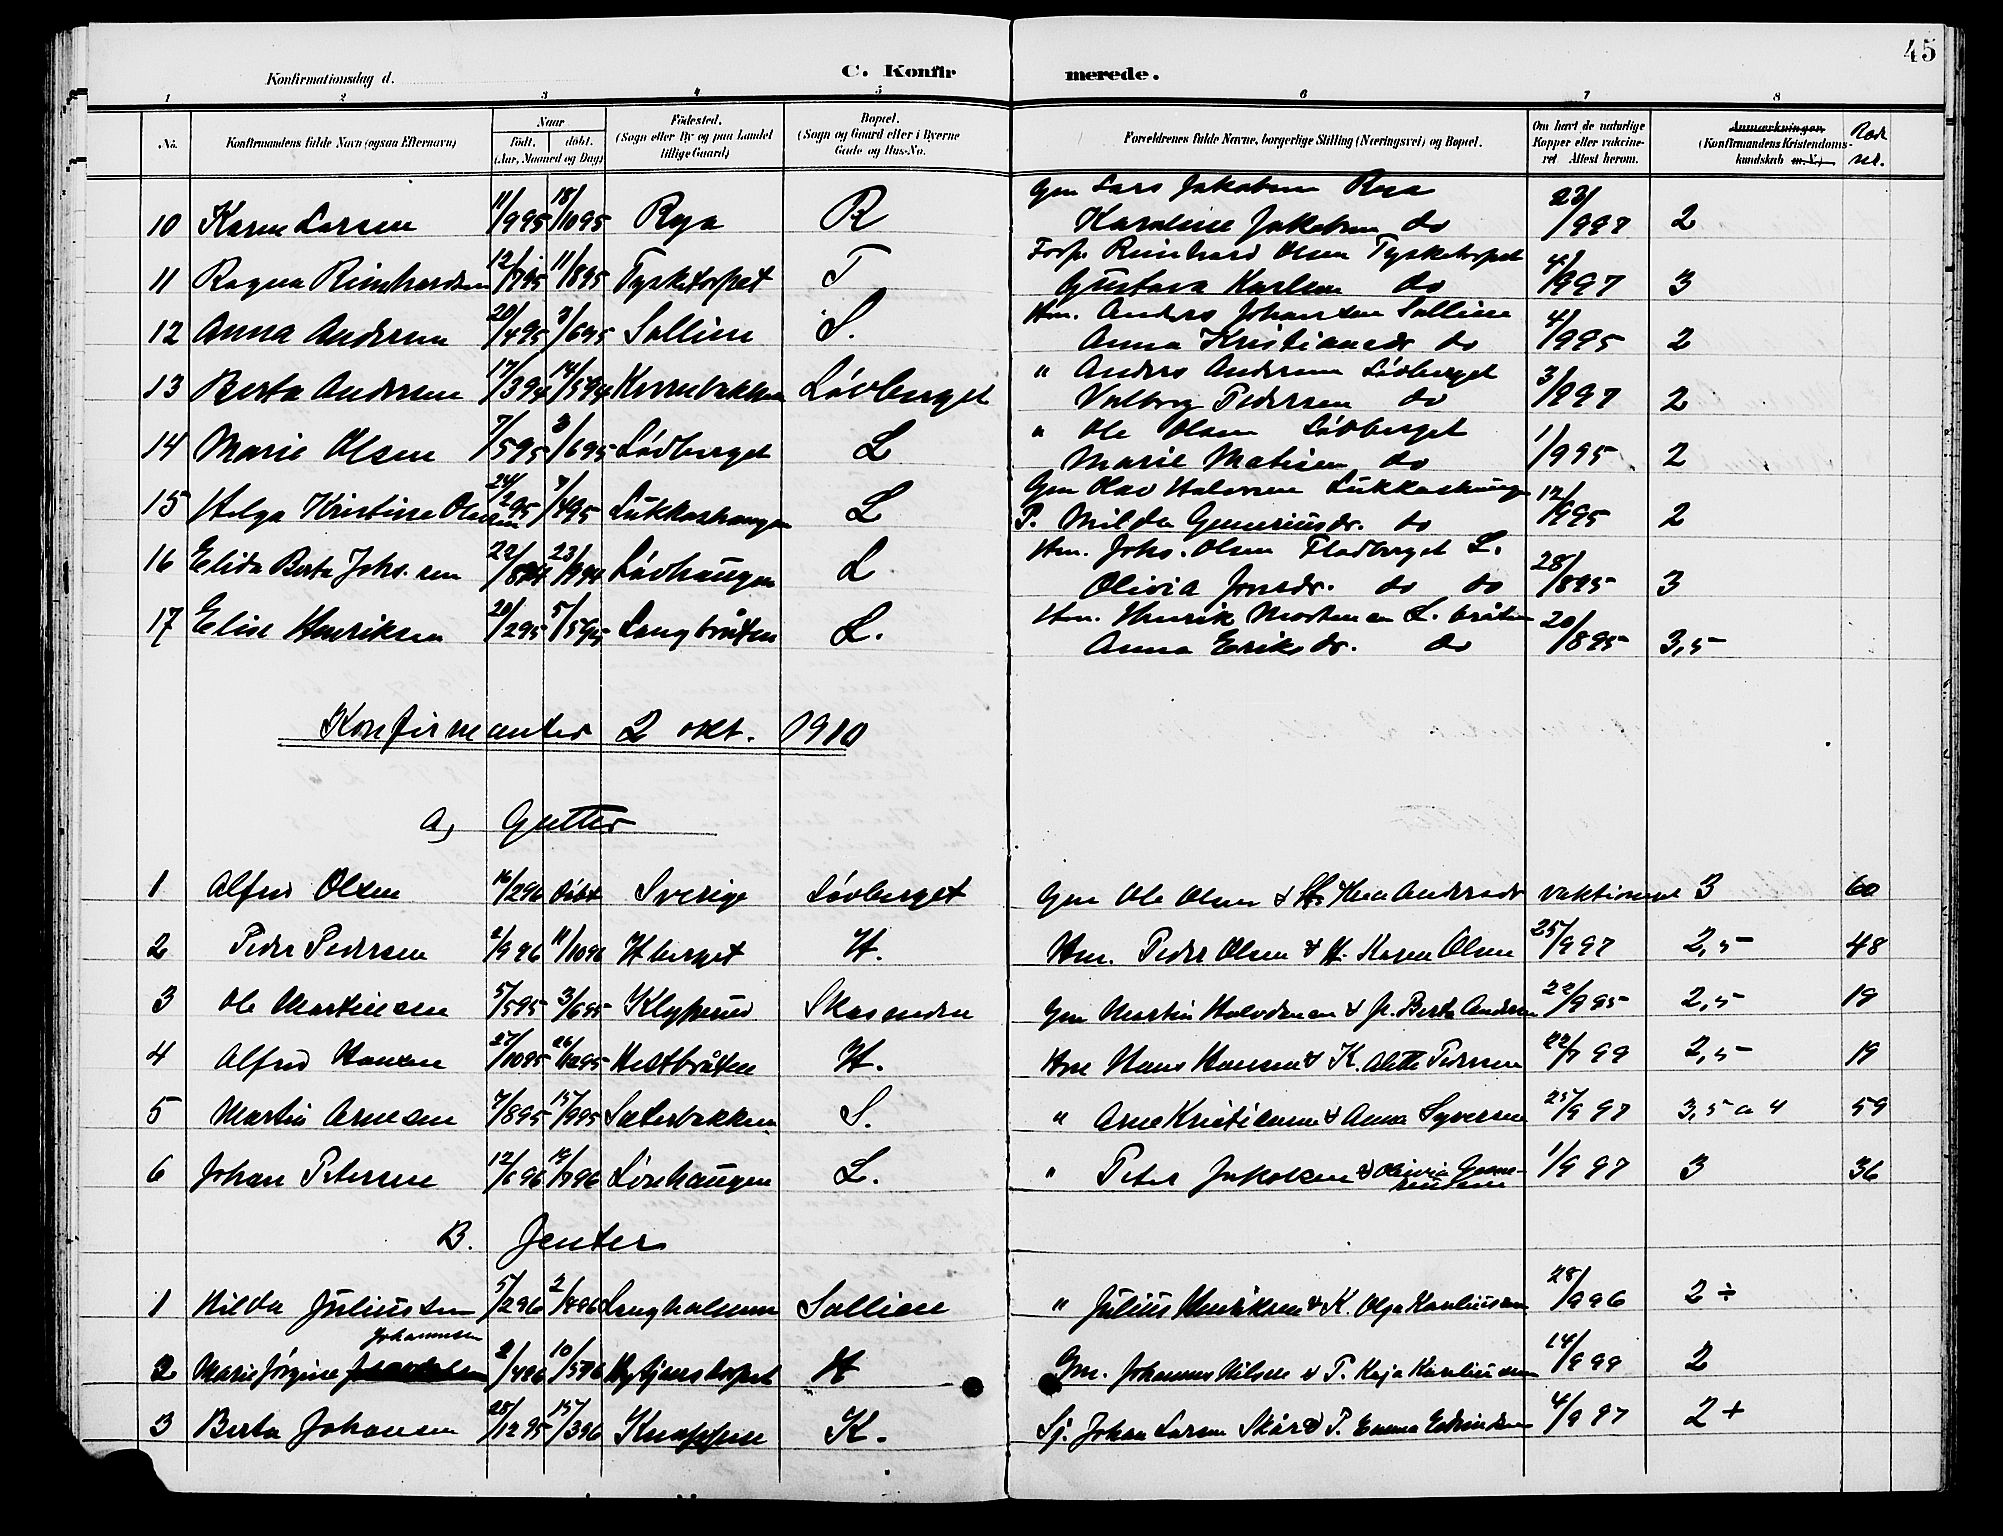 45
Konfirmationsdag d. C. Konfir merede.
1 2 3 4 5 6 7 8
No. Konfirmandens fulde Navn (ogsaa Efternavn) Naar født, døbt. (Aar, Maaned og Dag) Fødested. (Sogn eller By og paa Landet tillige Gaard) Bopæl. (Sogn og Gaard eller i Byerne Gade og Hus-No. Forældrenes fulde Navne, borgerlige Stilling (Næringsvei) og Bopæl. Om havt de naturlige Kopper eller vaccineret Attest herom. Anmærkninger (Konfirmandens Kristendomskundskab m. v.)
10 Karen Larsen 11/9 95 18/10 95 Røya R Gm Lars Jakobsen Røia 23/9 97 2
Karoline Jakobsen do
11 Ragna Reinhardsen 12/7 95 11/8 95 Tysketorpet T Forp. Reinhard Olsen Tysketorpet 4/9 97 3
Gustava Karlsen do
12 Anna Andersen 20/4 95 3/6 95 Sollien S. Hm. Anders Johansen Sollien 4/9 95 2
Anna Kristiansdr do
13 Berta Andersen 17/3 94 14/5 94 Løvberget " Anders Andersen Løvberget 3/9 97 2
Valborg Pedersen do
14 Marie Olsen 7/5 95 3/6 95 Lövberget L " Ole Olsen Løvberget 1/9 95 2
Marie Matisen do
15 Helga Kristine Olavsen 24/2 95 7/4 95 Lukkashaugen L Gm Olav Halvorsen Lukkashaugen 12/9 95 2
P. Milda Guneriusdr. do
16 Elida Berta Johs.sen 22/8 94 23/9 94 Løvhaugen L Hm. Johs. Olsen Fladberget L. 28/8 95 3
Olivia Jonsdr. do do
17 Elise Henriksen 20/2 95 5/5 95 Langbråten L. Hm. Henrik Mortensen L. bråten 20/8 95 3,5
Anna Eriksdr. do
Konfirmanter 2 okt. 1910
a, Gutter
1 Alfred Olsen 16/2 96 døbt Sverige Løvberget Gm Ole Olsen & 3 60
2 Peder Pedersen 2/9 96 11/10 96 H berget H. Hm. Peder Olsen & H. Karen Olsen 25/9 97 2,5 48
3 Ole Martinsen 5/5 95 3/6 95 Gm Martin Halvorsen & Berta Andersen 22/9 95 2,5 19
4 Alfred Hansen 27/10 95 26/12 95 Hestbråten H. Hm Hans Hansen & K. Alette Pedersen 22/9 99 2,5 19
5 Martin Arnesen 7/8 95 15/9 95 Sæterbakken S. " Arne Kristiansen & Anna Syversen 25/9 97 3,5 a 4 59
6 Johan Petersen 12/6 96 Løvhaugen L. " Peter Jakobsen & Olivia Guneriusdsen 1/9 97 3 36
B. Jenter
1 Hilda Juliussen 5/2 96 Langholmen Sollien " Julius Henriksen & K. Olga Karliussen 28/9 96 2 ÷
2 Marie Jørgine Johannsen 2/4 96 10/5 96 H Gm. Johannes Nilsen & P. Kaja Karliussen 14/9 99 2
3 Berta Johansen 28/12 95 15/3 96 Knappen K. Sj. Johan Larsen Skår & P. Emma Edvindsen 4/9 97 2 +